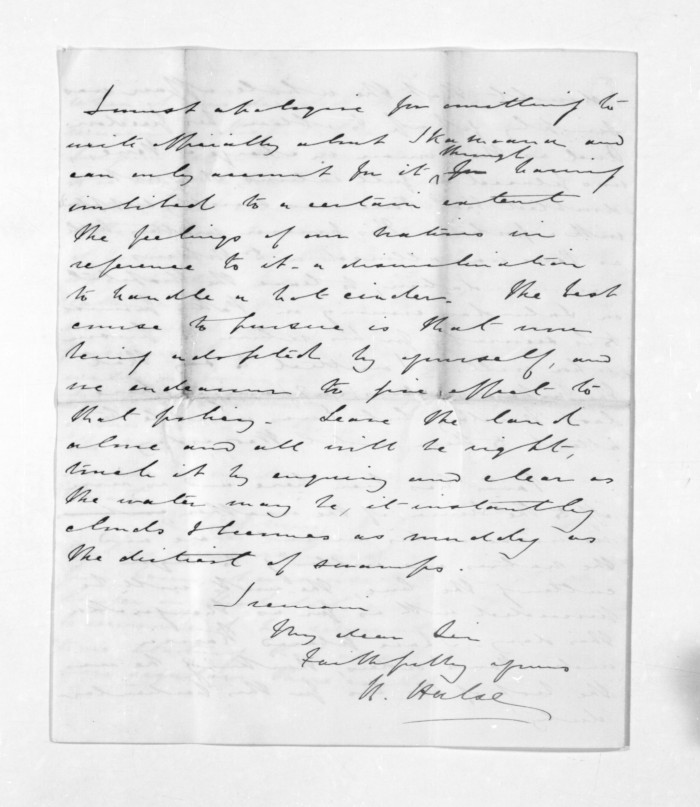 I must apologise for omitting to
write officially about Ikamoana and
can only account for it through
^ for having
imbibed to a certain extent
the feelings of our natives in
reference to it - a disinclination
to handle a hot cinder. The best
course to pursue is that now
being adopted by yourself, and
we endeavour to give effect to
that policy. Leave the land
alone and all will be right,
touch it by enquiry and clear as
the water may be, it instantly
clouds & becomes as muddy as
the dirtiest of swamps.
I remain
My dear Sir
Faithfully yours
W. Hulse